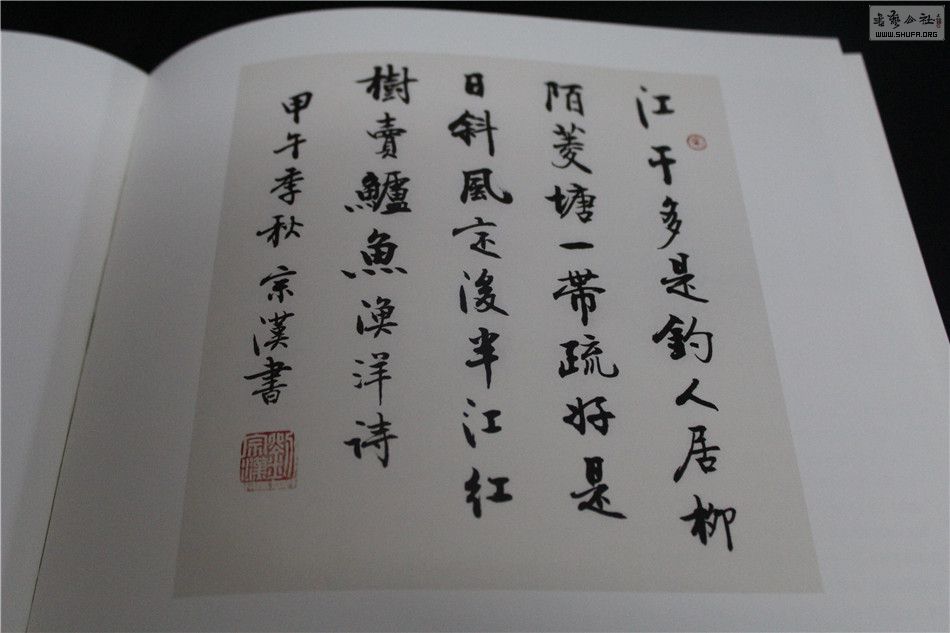 江干多是釣人居柳
陌菱塘一帶疏好是
日斜風定後半江紅
樹賣鱸魚漁洋詩
甲午季秋宗漢書
劉宗漢
WWW.SHUFA.ORG